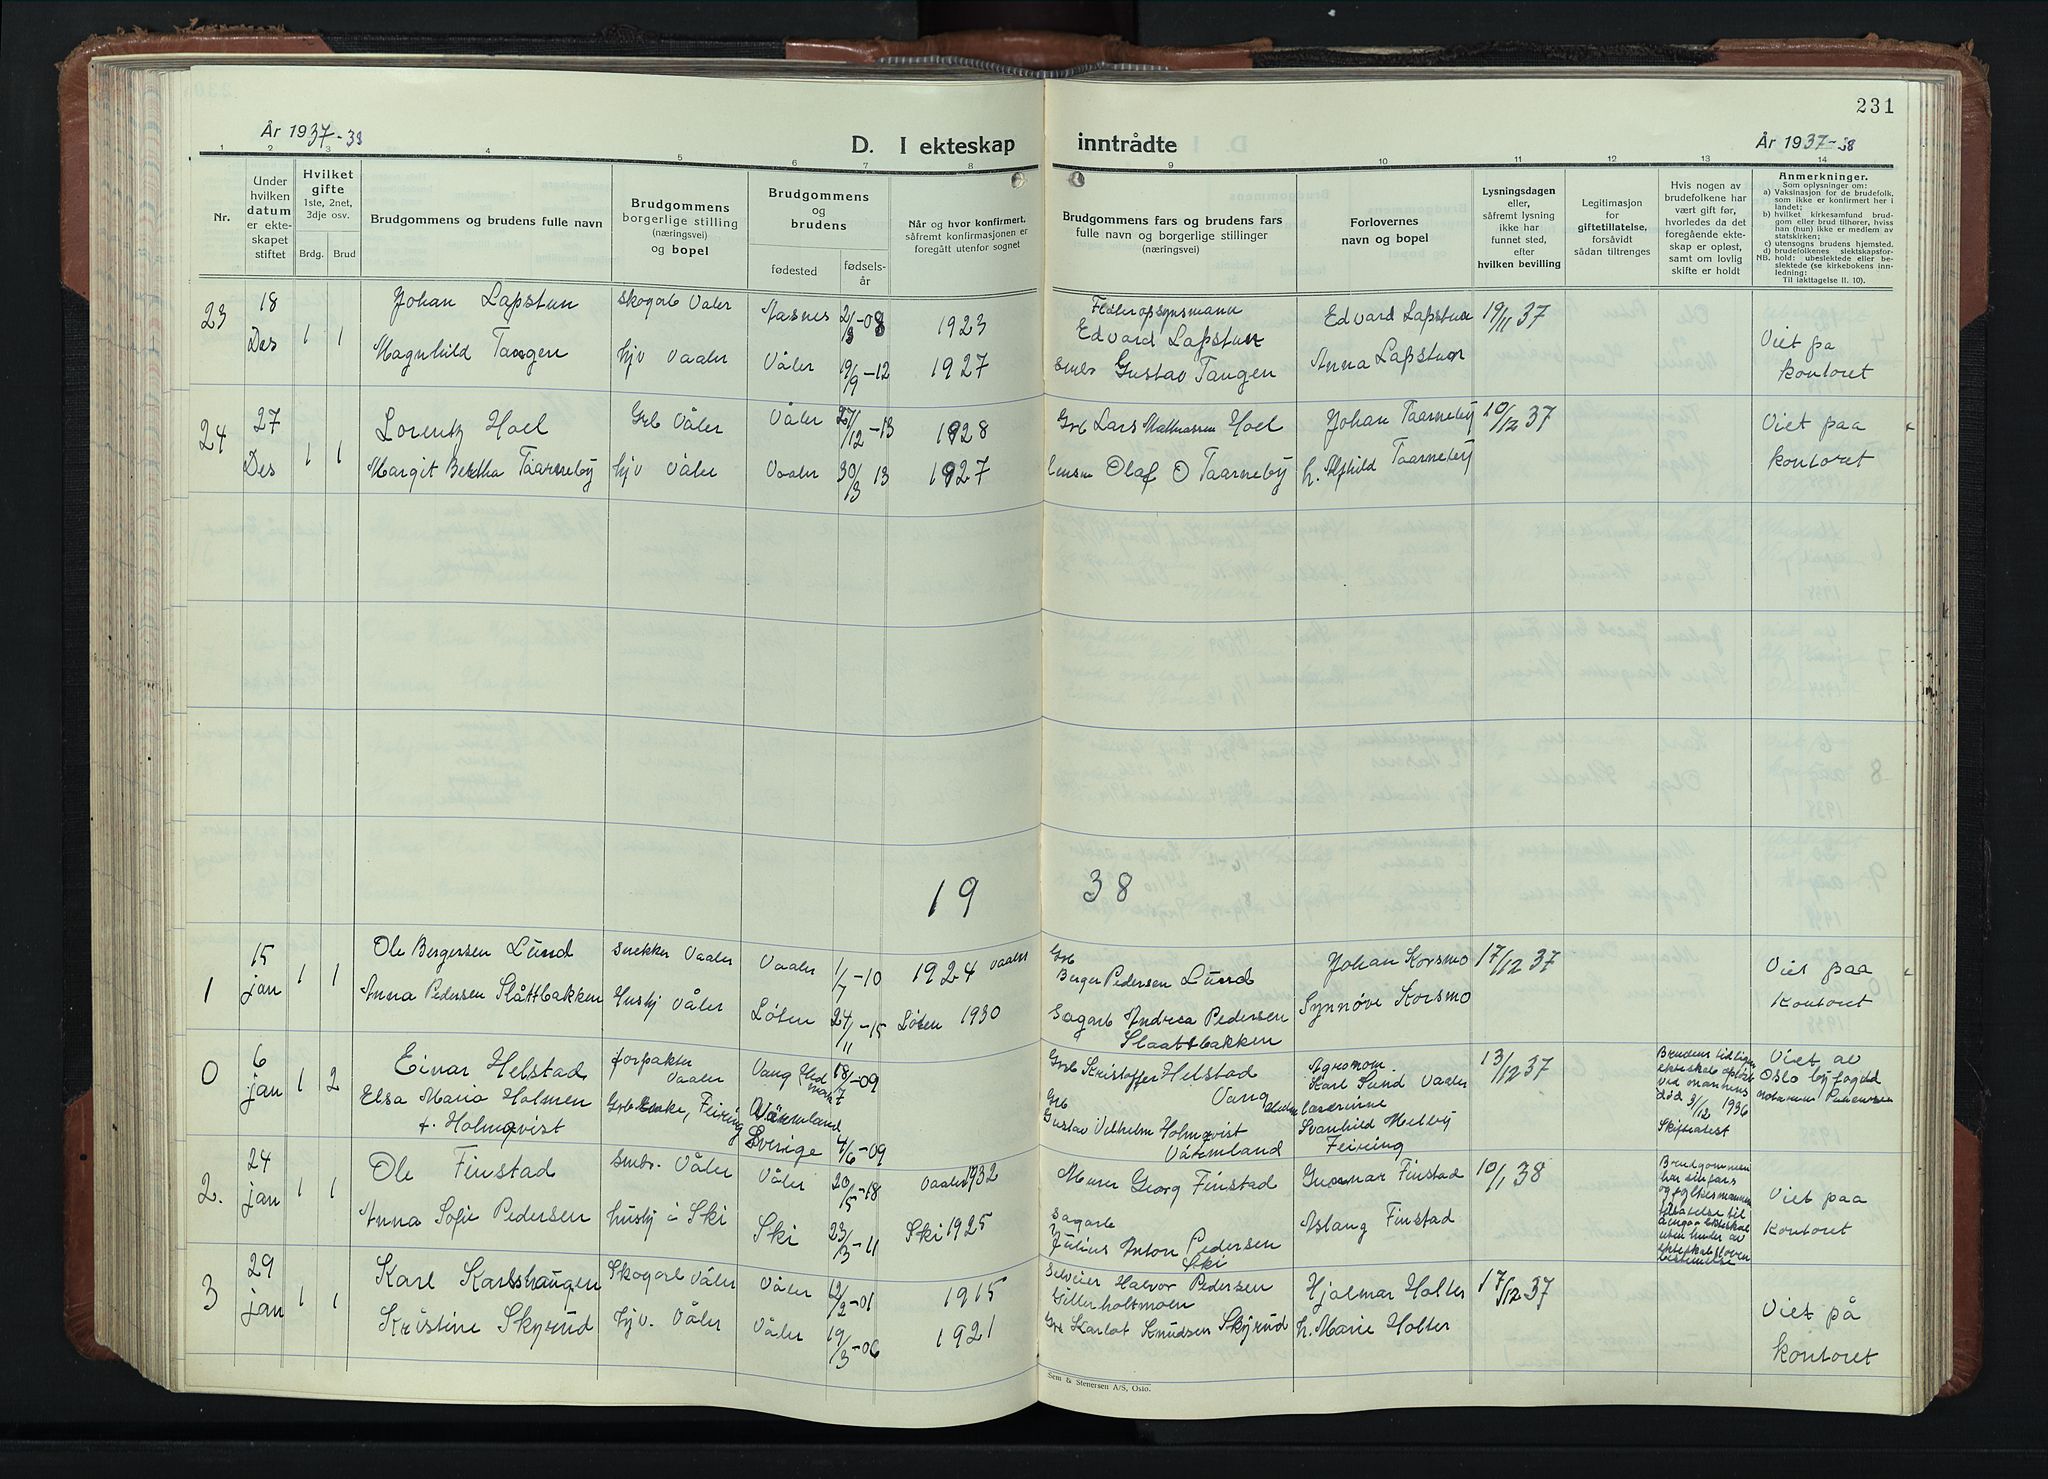 231
År 1937-38
D. I ekteskap inntrådte
År 1937-38
1 2 3 4 5 6 7 8 9 10 11 12 13 14
Nr.
Under hvilken datum er ekteskapet stiftet
Hvilket gifte 1ste, 2net, 3dje osv.
Brdg. Brud
Brudgommens og brudens fulle navn
Brudgommens borgerlige stilling (næringsvei) og bopel
Brudgommens og brudens
fødested
fødselsår
Når og hvor konfirmert, såfremt konfirmasjonen er foregått utenfor sognet
Brudgommens fars og brudens fars fulle navn og borgerlige stillinger (næringsvei)
Forlovernes navn og bopel
Lysningsdagen eller, såfremt lysning ikke har funnet sted, efter hvilken bevilling
Legitimasjon for giftetillatelse, forsåvidt sådan tiltrenges
Hvis nogen av brudefolkene har vært gift før, hvorledes da det foregående ekteskap er opløst, samt om lovlig skifte er holdt
Anmerkninger.
Som oplysninger om:
a) Vaksinasjon for de brudefolk, som ikke er konfirmert her i landet;
b) hvilket kirkesamfund brudgom eller brud tilhører, hviss han (hun) ikke er medlem av statskirken;
c) utensogns brudens hjemsted.
d) brudefolkenes slektskapsforhold: ubeslektede eller beslektede (se kirkebokens innledning;
NB.
Til iakttagelse II. 10).
23 18 Des 1 1
Johan Lapstun skogarb Våler Aasnes 2/3-08 1923
Fløteropsynsmann Edvard Lapstun Edvard Lapstun 19/11 37
Magnhild Tangen hjv Vaaler Våler 19/9-12 1927
Smbr Gustav Tangen Anna Lapstun
Viet pa kontoret
24 27 Des 1 1
Lorentz Hoel Grb Våler Våler 27/12-13 1928
Grb Lars Mathiassen Hoel Johan Taarneby 10/12 37
Margit Bertha Taarneby hjv Våler Vaaler 30/3 13 1927
Olaf O Taarneby h. Alfhild Taarneby
Viet paa kontoret
19 38
1 15 jan 1 1
Ole Bergersen Lund Snekker Vaaler Vaaler 1/7-10 1924 Vaaler
Grb Berger Pedersen Lund Johan Korsmo 17/12 37
Anna Pedersen Slåttbakken Hushj Våler Løten 24/11-15 Løten 1930
Sagarb Andrea Pedersen Slaattbakken Synnøve Korsmo
Viet paa Kontoret
0 6 jan 1 2
Einar Helstad forpakter Vaaler Vang Hedmark 18/7-09
Grb Kristoffer Helstad Vang Hedm Agronom Karl Lund Vaaler 13/12 37
Elsa Maria Holmen f. Holmqvist Grb Enke, Feiring Värmland Sverige 4/6-09
Grb Gustav Vilhelm Holmqvist Värmland lærerinne Svanhild Melby Feiring
Brudens tidligere ekteskab opløst ved mannens død 3/12 1936 Skifteattest
Viet av Oslo byfogd
2. 24 jan 1 1
Ole Finstad Smbr. Våler Våler 20/5-18 Vaaler 1932
Murer Georg Finstad Gunnar Finstad 10/1 38
Anna Sofie Pedersen hushj i Ski Ski 23/3-11 Ski 1925
Sagarb Julius Anton Pedersen Ski Aslaug Finstad
Brudgommen har sin fars og fylkesmannens tillatelse til å inngaa ekteskab uten hinder av ekteskabsloven bestemmelse
Viet paa kontoret
3 29 jan 1 1
Karl Karlshaugen Skogarb Våler Våler 12/2-01 1915
Selveier Halvor Pedersen Gillerholtmoen Hjalmar Holter 17/12 37
Kristine Skyrud hjv. Våler Våler 19/3-06 1921
Grb Karlot Knudsen Skyrud h. Marie Holter
Viet på kontoret
Sem & Stenersen A/S, Oslo.